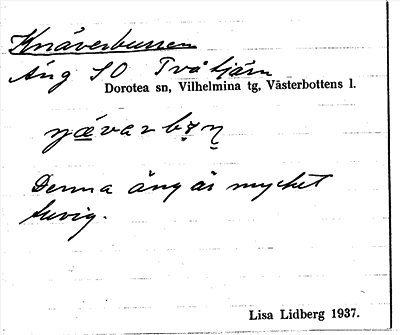 Knäverbussen
Äng SO Två tjärn
Dorotea sn, Vilhelmina tg, Västerbottens l.
Denna äng är mycket
tuvig.
Lisa Lidberg 1937.